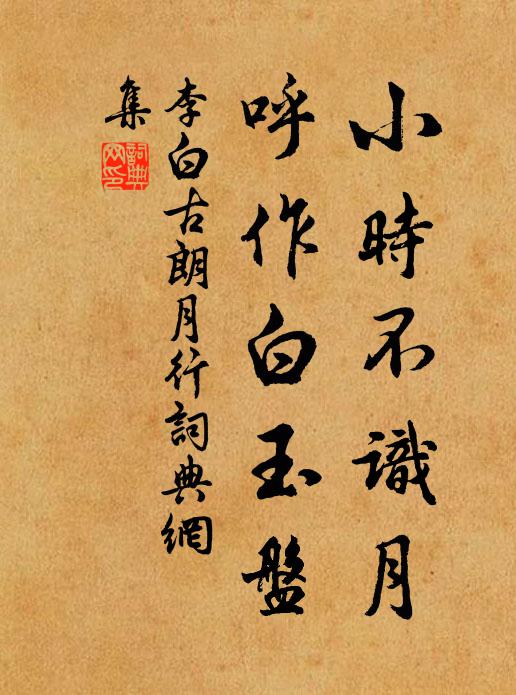 小時不識月
呼作白玉盤
李白古朗月行詞典網
集
詞典
网印